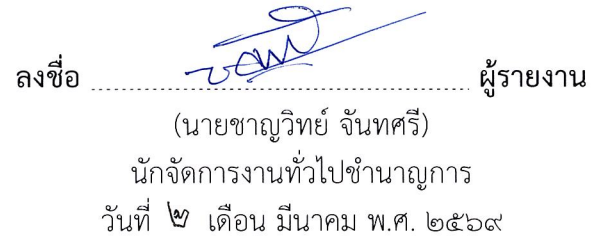 ลงชื่อ ผู้รายงาน
(นายชาญวิทย์ จันทศรี)
นักจัดการงานทั่วไปชำนาญการ
วันที่ ๒ เดือน มีนาคม พ.ศ. ๒๕๖๙